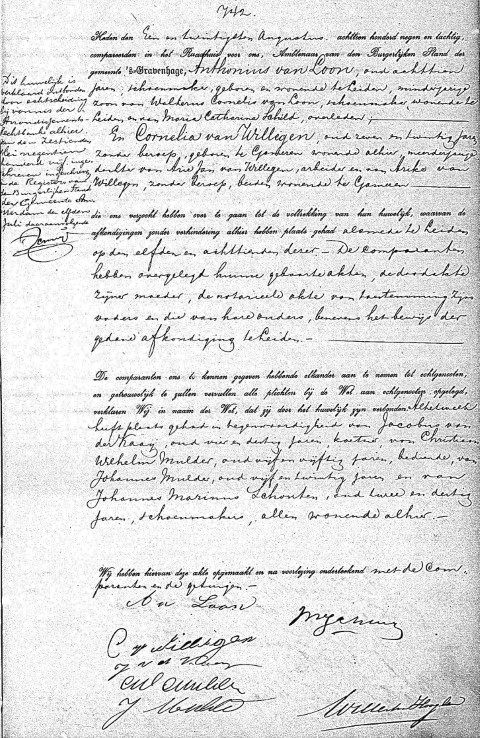 742.
Heden den Een en twintigsten Augustus achttien honderd negen en tachtig,
compareerden in het Raadhuis voor ons, Ambtenaar van den Burgerlijken Stand der
gemeente 's-Gravenhage, Anthonius van Loon, oud achttien
jaren, schoenmaker, geboren en wonende te Leiden, minderjarige
zoon van Walterus Cornelis van Loon, schoenmaker, wonende te
Leiden, en van Maria Catharina, overleden;
En Cornelia van Willegen, oud zeven en twintig jaren,
zonder beroep, geboren te Gameren wonende alhier, meerderjarige
dochter van Arie Jan van Willegen, arbeider en van van
Willegen, zonder beroep, beiden wonende te Gameren
die ons verzocht hebben over te gaan tot de voltrekking van hun huwelijk, waarvan de
afkondigingen zonder verhindering alhier hebben plaats gehad alsmede te Leiden
op den elfden en achttienden dezer. - De comparanten
hebben overgelegd hunne geboorteakten, de doodakte
zijner moeder, de notarieele akte van toestemming zijns
vaders en die van hare ouders, benevens het bewijs der
gedane afkondiging te Leiden. -
De comparanten ons te kennen gegeven hebbende elkander aan te nemen tot echtgenooten,
en getrouwelijk te zullen vervullen alle plichten bij de Wet aan echtgenooten opgelegd,
verklaren Wij in naam der Wet, dat zij door het huwelijk zijn verbonden. Al hetwelk
heeft plaats gehad in tegenwoordigheid van Jacobus van
der Kaay, oud vier en dertig jaren, koetsier, van Christiaan
Wilhelm Mulder, oud vijf en vijftig jaren, bediende, van
Johannes Mulder, oud vijf en twintig jaren en van
Johannes Marinus Schouten, oud twee en dertig
jaren, schoenmakers, allen wonende alhier. -
Wij hebben hiervan deze akte opgemaakt en na voorlezing onderteekend met de com
paranten en de getuigen. -
A v Loon
C v Willegen
J v d Kaay
CW Mulder
J Mulder
Dit huwelijk is
verklaard ontbonden
door echtscheiding
bij vonnis der
Arrondissements-
Rechtbank alhier
van den zestienden
Mei negentien
honderd vijf, inge-
schreven in
de Registers van
den Burgerlijken Stand
der Gemeente Am
sterdam den elfden
Juli daaraanvolgende